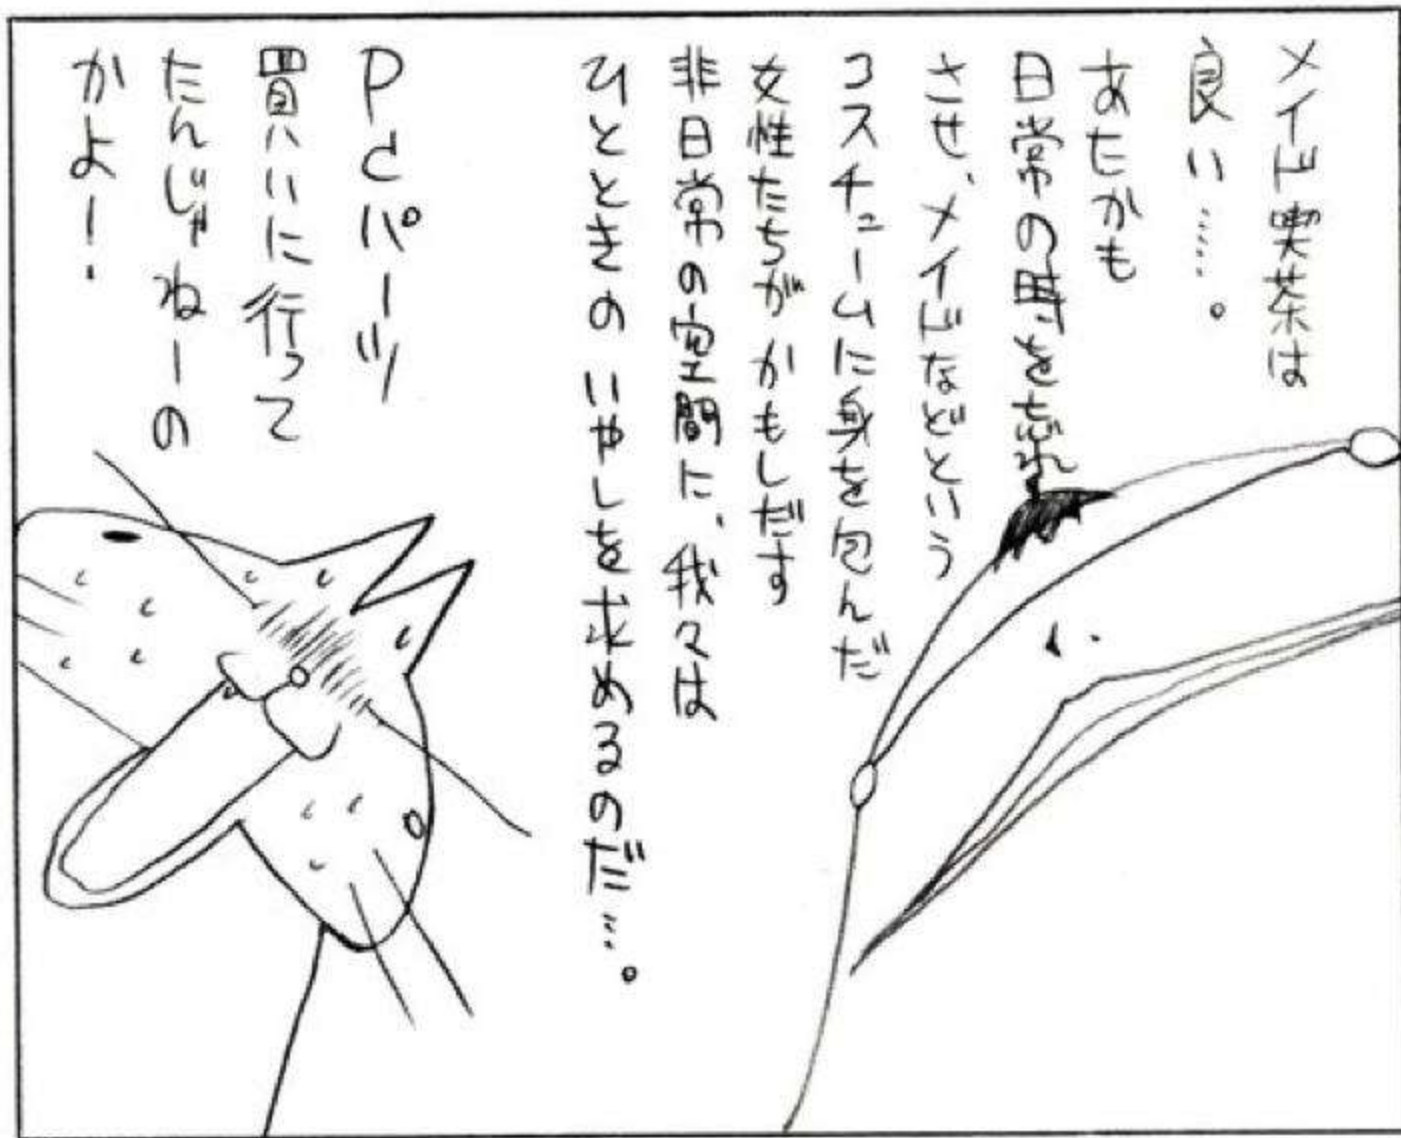 メイド喫茶は
良い……。
あたかも
日常の時を忘れ
させ、メイドなどという
コスチュームに身を包んだ
女性たちがかもしだす
非日常の空間に、我々は
ひとときのいやしを求めるのだ…。
PCパーツ
買いに行って
たんじゃねーの
かよー!